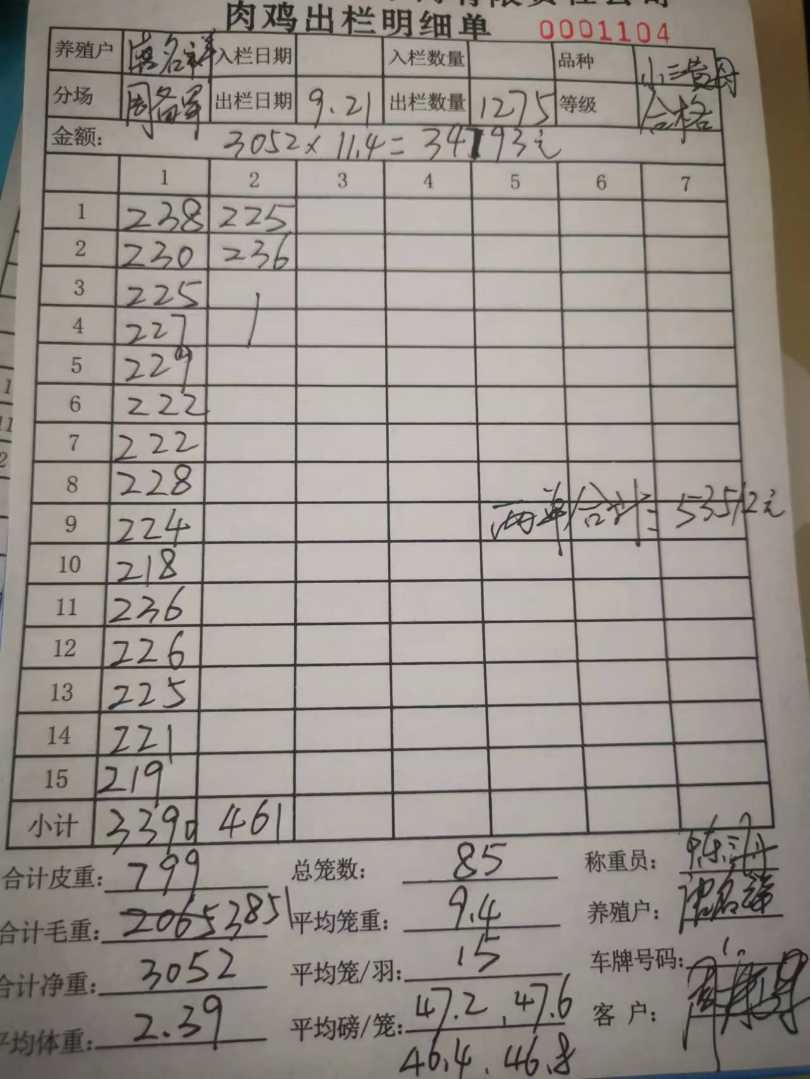 肉鸡出栏明细单 0001104
养殖户 入栏日期 入栏数量 品种 小三黄母
分场 出栏日期 9.21 出栏数量 1275 等级 合格
金额: 3052×11.4=34793元
1 2 3 4 5 6 7
1 238 225
2 230 236
3 225
4 227
5 229
6 222
7 222
8 228
9 224 两单合计=53512元
10 218
11 236
12 226
13 225
14 221
15 219
小计 3390 461
合计皮重: 799 总笼数: 85 称重员:
合计毛重: 3851 平均笼重: 9.4 养殖户:
合计净重: 3052 平均笼/羽: 15 车牌号码:
平均体重: 2.39 平均磅/笼: 47.2、47.6 客户:
46.4、46.8